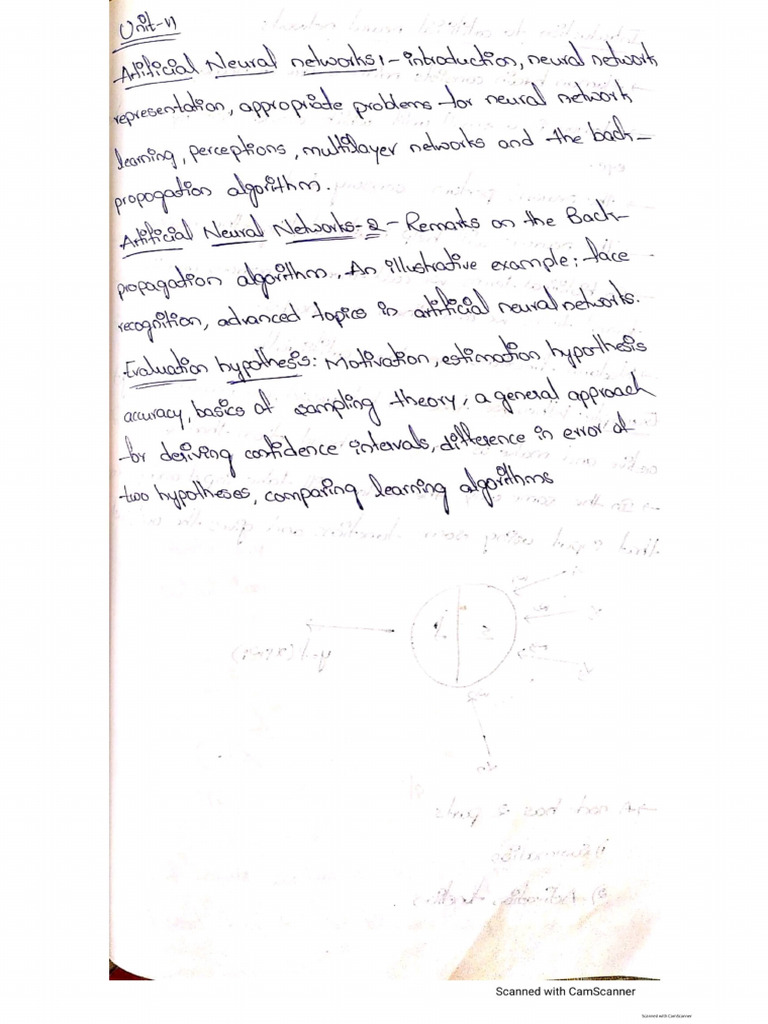 Unit-II
Artificial Neural networks1- introduction, neural network
representation, appropriate problems for neural network
learning, perceptions, multilayer networks and the back-
propogation algorithm.
Artificial Neural Networks-2 - Remarks on the Back-
propagation algorithm. An illustrative example: face
recognition, advanced topics in artificial neural networks.
Evaluation hypothesis: Motivation, estimation hypothesis
accuracy, basics of sampling theory, a general approach
for deriving confidence intervals, difference in error of
two hypotheses, comparing learning algorithms
Scanned with CamScanner
Scanned with CamScanner